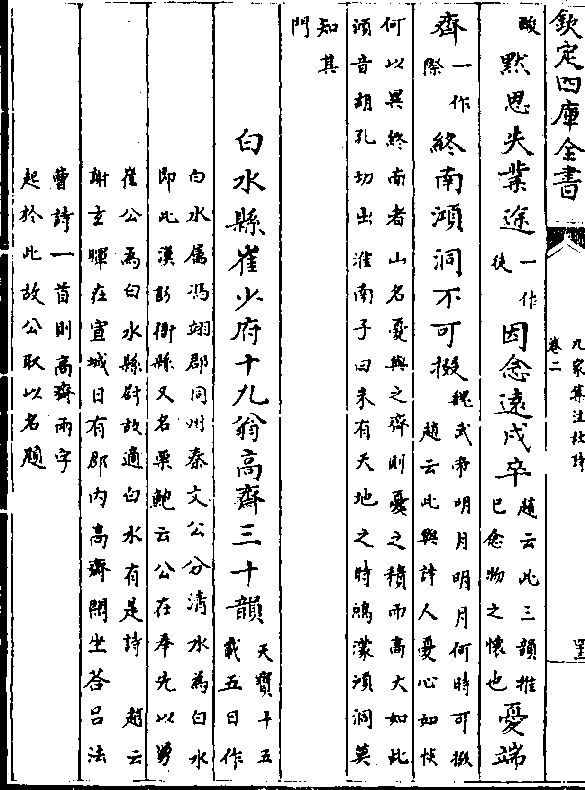 欽定四庫全書
九家集注杜詩
卷二
酸默思失業途一作徒因念遠戍卒趙云此三韻推已念物之懷也憂端
齊一作際終南澒洞不可掇魏武帝明月明月何時可掇趙云此與詩人憂心如惔
何以異終南者山名憂與之齊則憂之積而高大如此
澒音胡孔切出淮南子曰未有天地之時鴻濛澒洞莫
知其
門
白水縣崔少府十九翁高齋三十韻天寳十五載五日作
白水屬馮翊郡同州秦文公分清水為白水
即此漢彭衙縣又名粟鮑云公在奉先以舅
崔公為白水縣尉故適白水有是詩 趙云
謝玄暉在宣城日有郡內高齋閒坐荅呂法
曹詩一首則高齋兩字
起於此故公取以名題